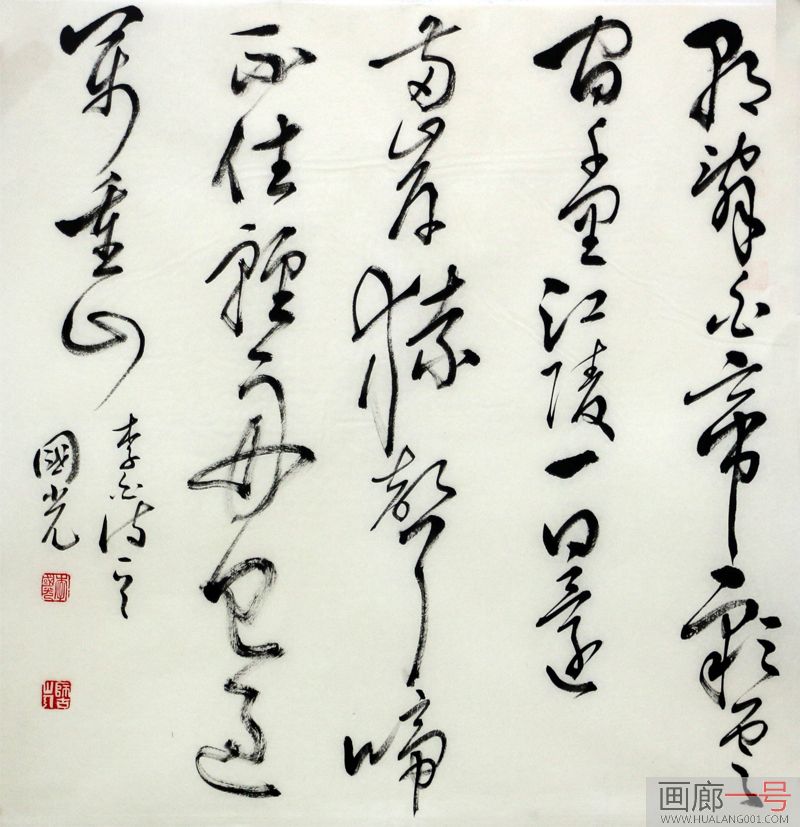 朝辭白帝彩雲
間千里江陵一日還
兩岸猿聲啼
不住輕舟已過
萬重山
李白詩一首
國光
画廊一号
WWW.HUALANG001.COM